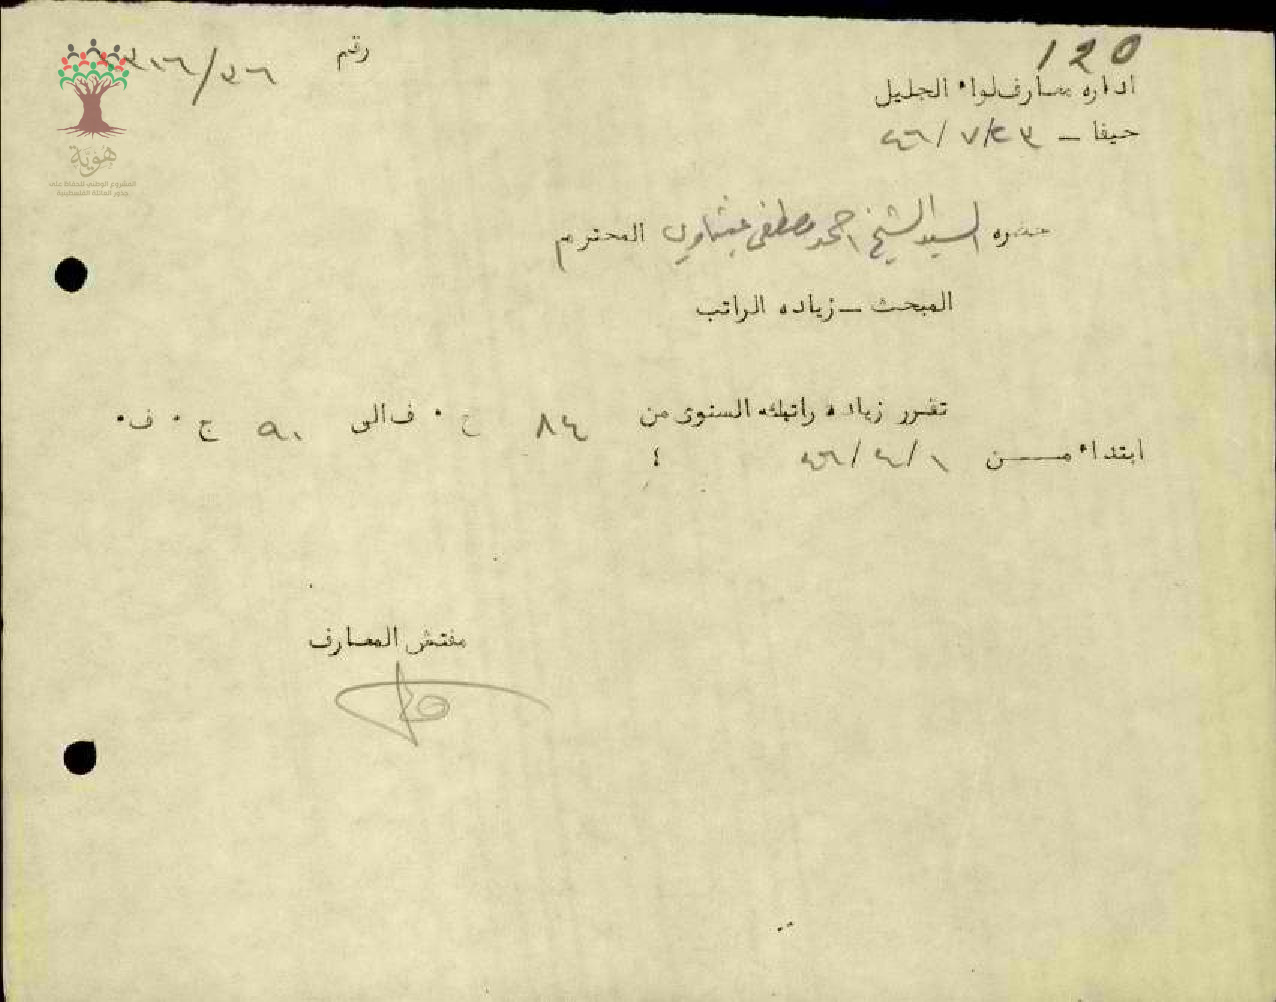 120
رقم ٣١٦/٣٦
اداره معارف لواء الجليل
حيفا – ٢٣/٧/٤٦
حضره السيد الشيخ احمد مصطفى المحترم
المبحث – زياده الراتب
تقرر زياده راتبكم السنوى من ٨٤ ج ٠ ف الى ٩٠ ج ٠ ف٠
ابتداء من ١/٤/٤٦ ؛
مفتش المعارف
هوية
المشروع الوطني للحفاظ على
جذور العائلة الفلسطينية